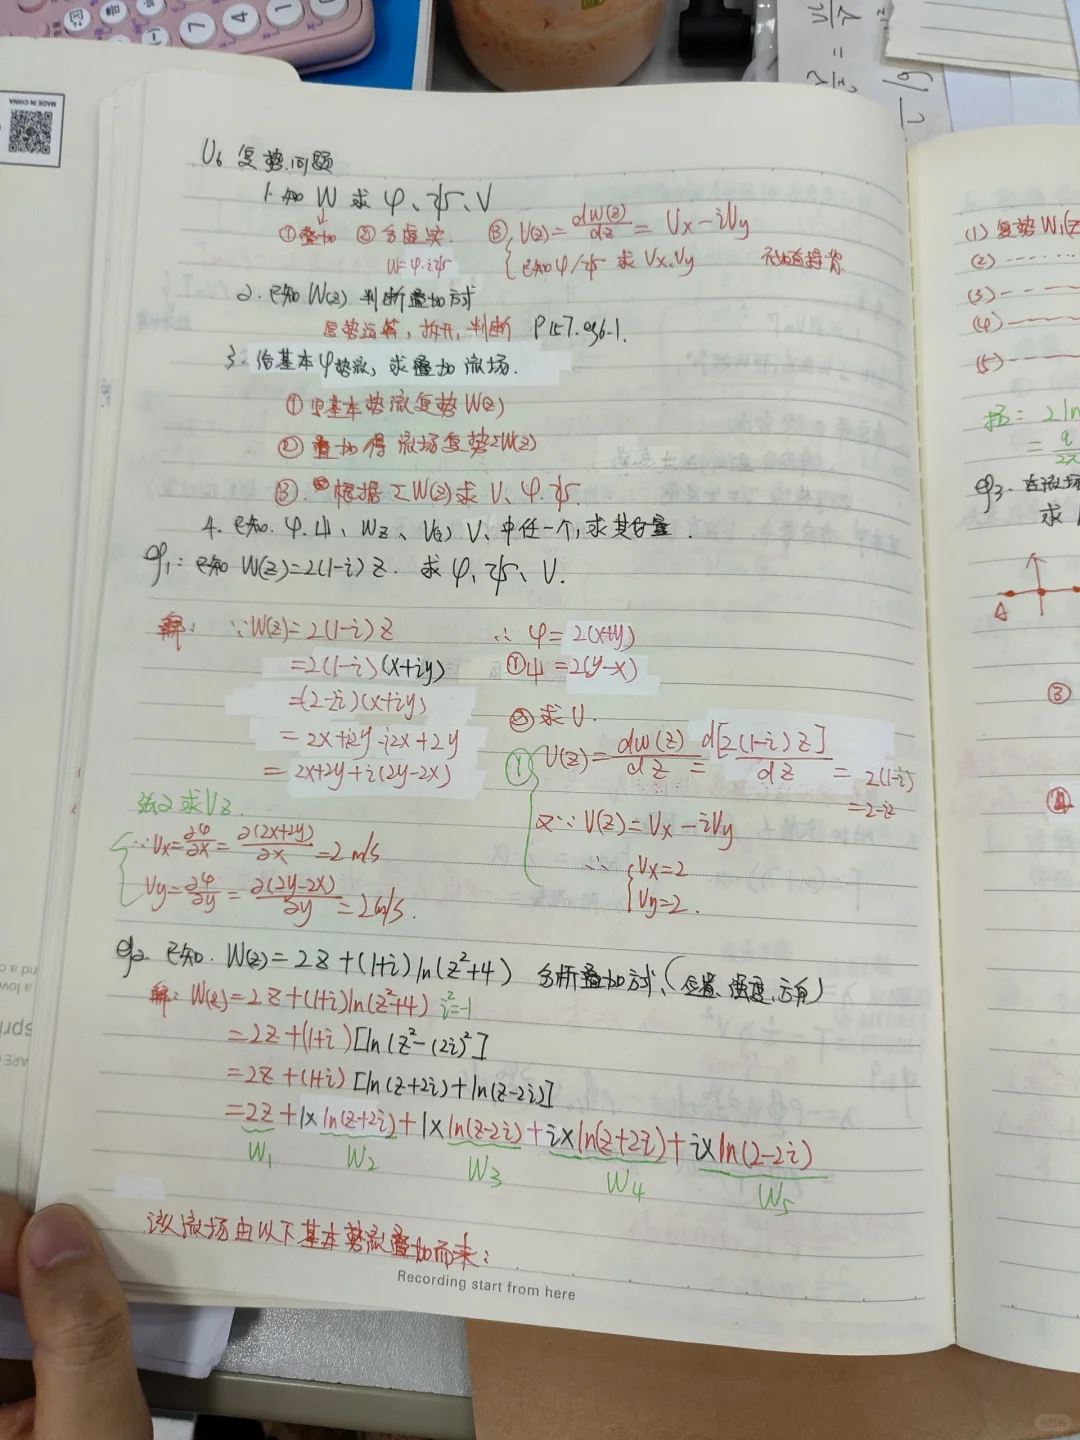 MADE IN CHINA
U6 复势问题
1. 知 W 求 φ、ψ、V
①叠加 ②分虚实. ③ V(z)=dW(z)/dz = Vx-iVy
W=φ+iψ 已知φ/ψ 求 Vx.Vy
2. 已知 W(z) 判断叠加方式
复势运算, 拆开, 判断 P157.eg6-1.
3. 给基本φ势流, 求叠加流场.
① 求基本势流复势W(z)
② 叠加得流场复势ΣW(z)
③. 根据ΣW(z)求 V、φ.ψ
4. 已知. φ.ψ、Wz、V(z) V、中任一个, 求其它量.
eg1: 已知 W(z)=2(1-i)z. 求 φ、ψ、V.
解: ∵W(z)=2(1-i)z
=2(1-i)(x+iy)
=(2-2i)(x+iy)
=2x+i2y-i2x+2y
=2x+2y+i(2y-2x)
∴ φ=2(x+y)
① ψ=2(y-x)
② 求V.
① V(z)=dW(z)/dz=d[2(1-i)z]/dz=2(1-i)
=2-i2
又∵ V(z)=Vx-iVy
∴ { Vx=2
Vy=2.
法2求Vz.
∵Vx=∂φ/∂x=∂(2x+2y)/∂x=2m/s
Vy=∂φ/∂y=∂(2y-2x)/∂y=2m/s.
eg2. 已知. W(z)=2z+(1+i)ln(z²+4) 分析叠加方式、(位置、强度、方向)
解: W(z)=2z+(1+i)ln(z²+4) i²=-1
=2z+(1+i)[ln(z²-(2i)²]
=2z+(1+i)[ln(z+2i)+ln(z-2i)]
=2z+1×ln(z+2i)+1×ln(z-2i)+i×ln(z+2i)+i×ln(2-2i)
W1 W2 W3 W4 W5
该流场由以下基本势流叠加而来:
Recording start from here
(1) 复势W1(z
(2)
(3)
(4)
(5)
2ln
eg3.
求
A
③
小红书